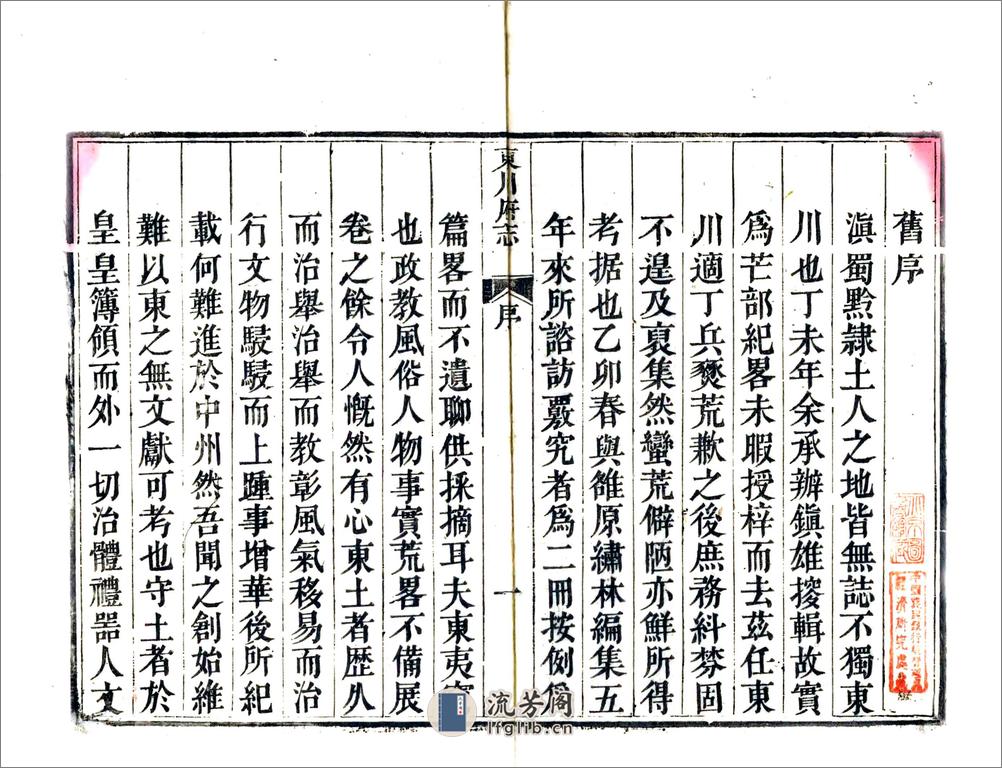 舊序
滇蜀黔隸土人之地皆無誌不獨東
川也丁未年余承辦鎮雄搜輯故實
爲芒部紀畧未暇授梓而去茲任東
川適丁兵燹荒歉之後庶務糾棼固
不遑及裒集然蠻荒僻陋亦鮮所得
考据也乙卯春與雒原繡林編集五
年來所諮訪覈究者爲二冊按例
東川府志
序
一
篇畧而不遺聊供採摘耳夫東夷
也政教風俗人物事實荒畧不備展
卷之餘令人慨然有心東土者歷久
而治舉治舉而教彰風氣移易而治
行文物駸駸而上踵事增華後所紀
載何難進於中州然吾聞之創始維
難以東之無文獻可考也守土者於
皇皇簿領而外一切治體禮器人文
流芳阁
lfglib.cn